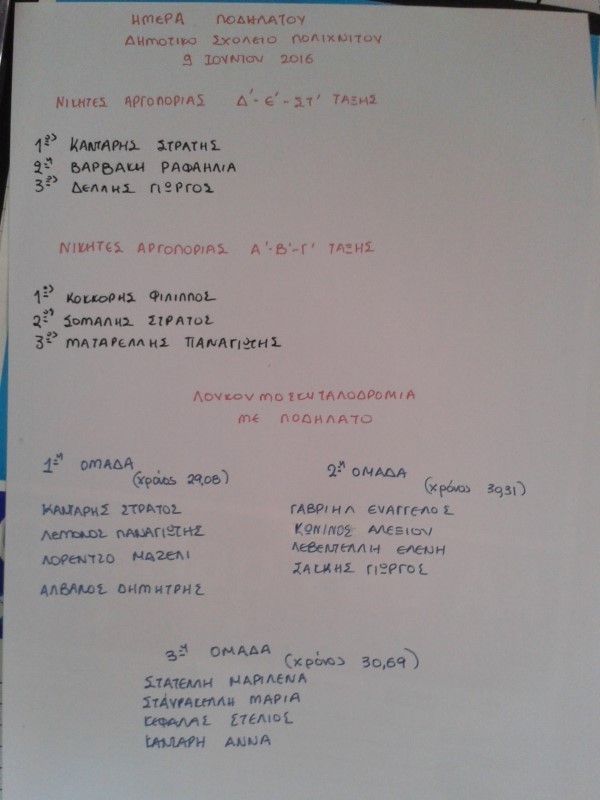 ΗΜΕΡΑ ΠΟΔΗΛΑΤΟΥ
ΔΗΜΟΤΙΚΟ ΣΧΟΛΕΙΟ ΠΟΛΙΧΝΙΤΟΥ
9 ΙΟΥΝΙΟΥ 2016
ΝΙΚΗΤΕΣ ΑΡΓΟΠΟΡΙΑΣ Δ'-Ε'-ΣΤ' ΤΑΞΗΣ
1ος ΚΑΝΤΑΡΗΣ ΣΤΡΑΤΗΣ
2η ΒΑΡΒΑΚΗ ΡΑΦΑΗΛΙΑ
3ος ΔΕΛΛΗΣ ΓΙΩΡΓΟΣ
ΝΙΚΗΤΕΣ ΑΡΓΟΠΟΡΙΑΣ Α'-Β'-Γ' ΤΑΞΗΣ
1ος ΚΟΚΚΟΡΗΣ ΦΙΛΙΠΠΟΣ
2ος ΣΟΜΑΛΗΣ ΣΤΡΑΤΟΣ
3ος ΜΑΤΑΡΕΛΛΗΣ ΠΑΝΑΓΙΩΤΗΣ
ΛΟΥΚΟΥΜΟΣΚΥΤΑΛΟΔΡΟΜΙΑ
ΜΕ ΠΟΔΗΛΑΤΟ
1η ΟΜΑΔΑ
(χρόνος 29,08)
ΚΑΝΤΑΡΗΣ ΣΤΡΑΤΟΣ
ΛΕΜΟΝΟΣ ΠΑΝΑΓΙΩΤΗΣ
ΛΟΡΕΝΤΖΟ ΜΑΖΕΛΙ
ΑΛΒΑΝΟΣ ΔΗΜΗΤΡΗΣ
2η ΟΜΑΔΑ
(χρόνος 30,31)
ΓΑΒΡΙΗΛ ΕΥΑΓΓΕΛΟΣ
ΚΩΝΙΝΟΣ ΑΛΕΞΙΟΥ
ΛΕΒΕΝΤΕΛΛΗ ΕΛΕΝΗ
ΓΙΩΡΓΟΣ
3η ΟΜΑΔΑ (χρόνος 30,69)
ΣΤΑΤΕΛΛΗ ΜΑΡΙΛΕΝΑ
ΣΤΑΥΡΑΚΕΛΛΗ ΜΑΡΙΑ
ΚΕΦΑΛΑΣ ΣΤΕΛΙΟΣ
ΚΑΝΤΑΡΗ ΑΝΝΑ